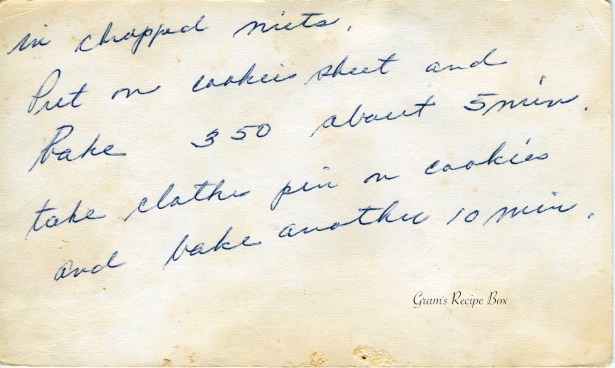 in chopped nuts.
Put on cookie sheet and
Bake 350 about 5 min.
take clothe pin on cookies
and bake another 10 min.
Gram's Recipe Box